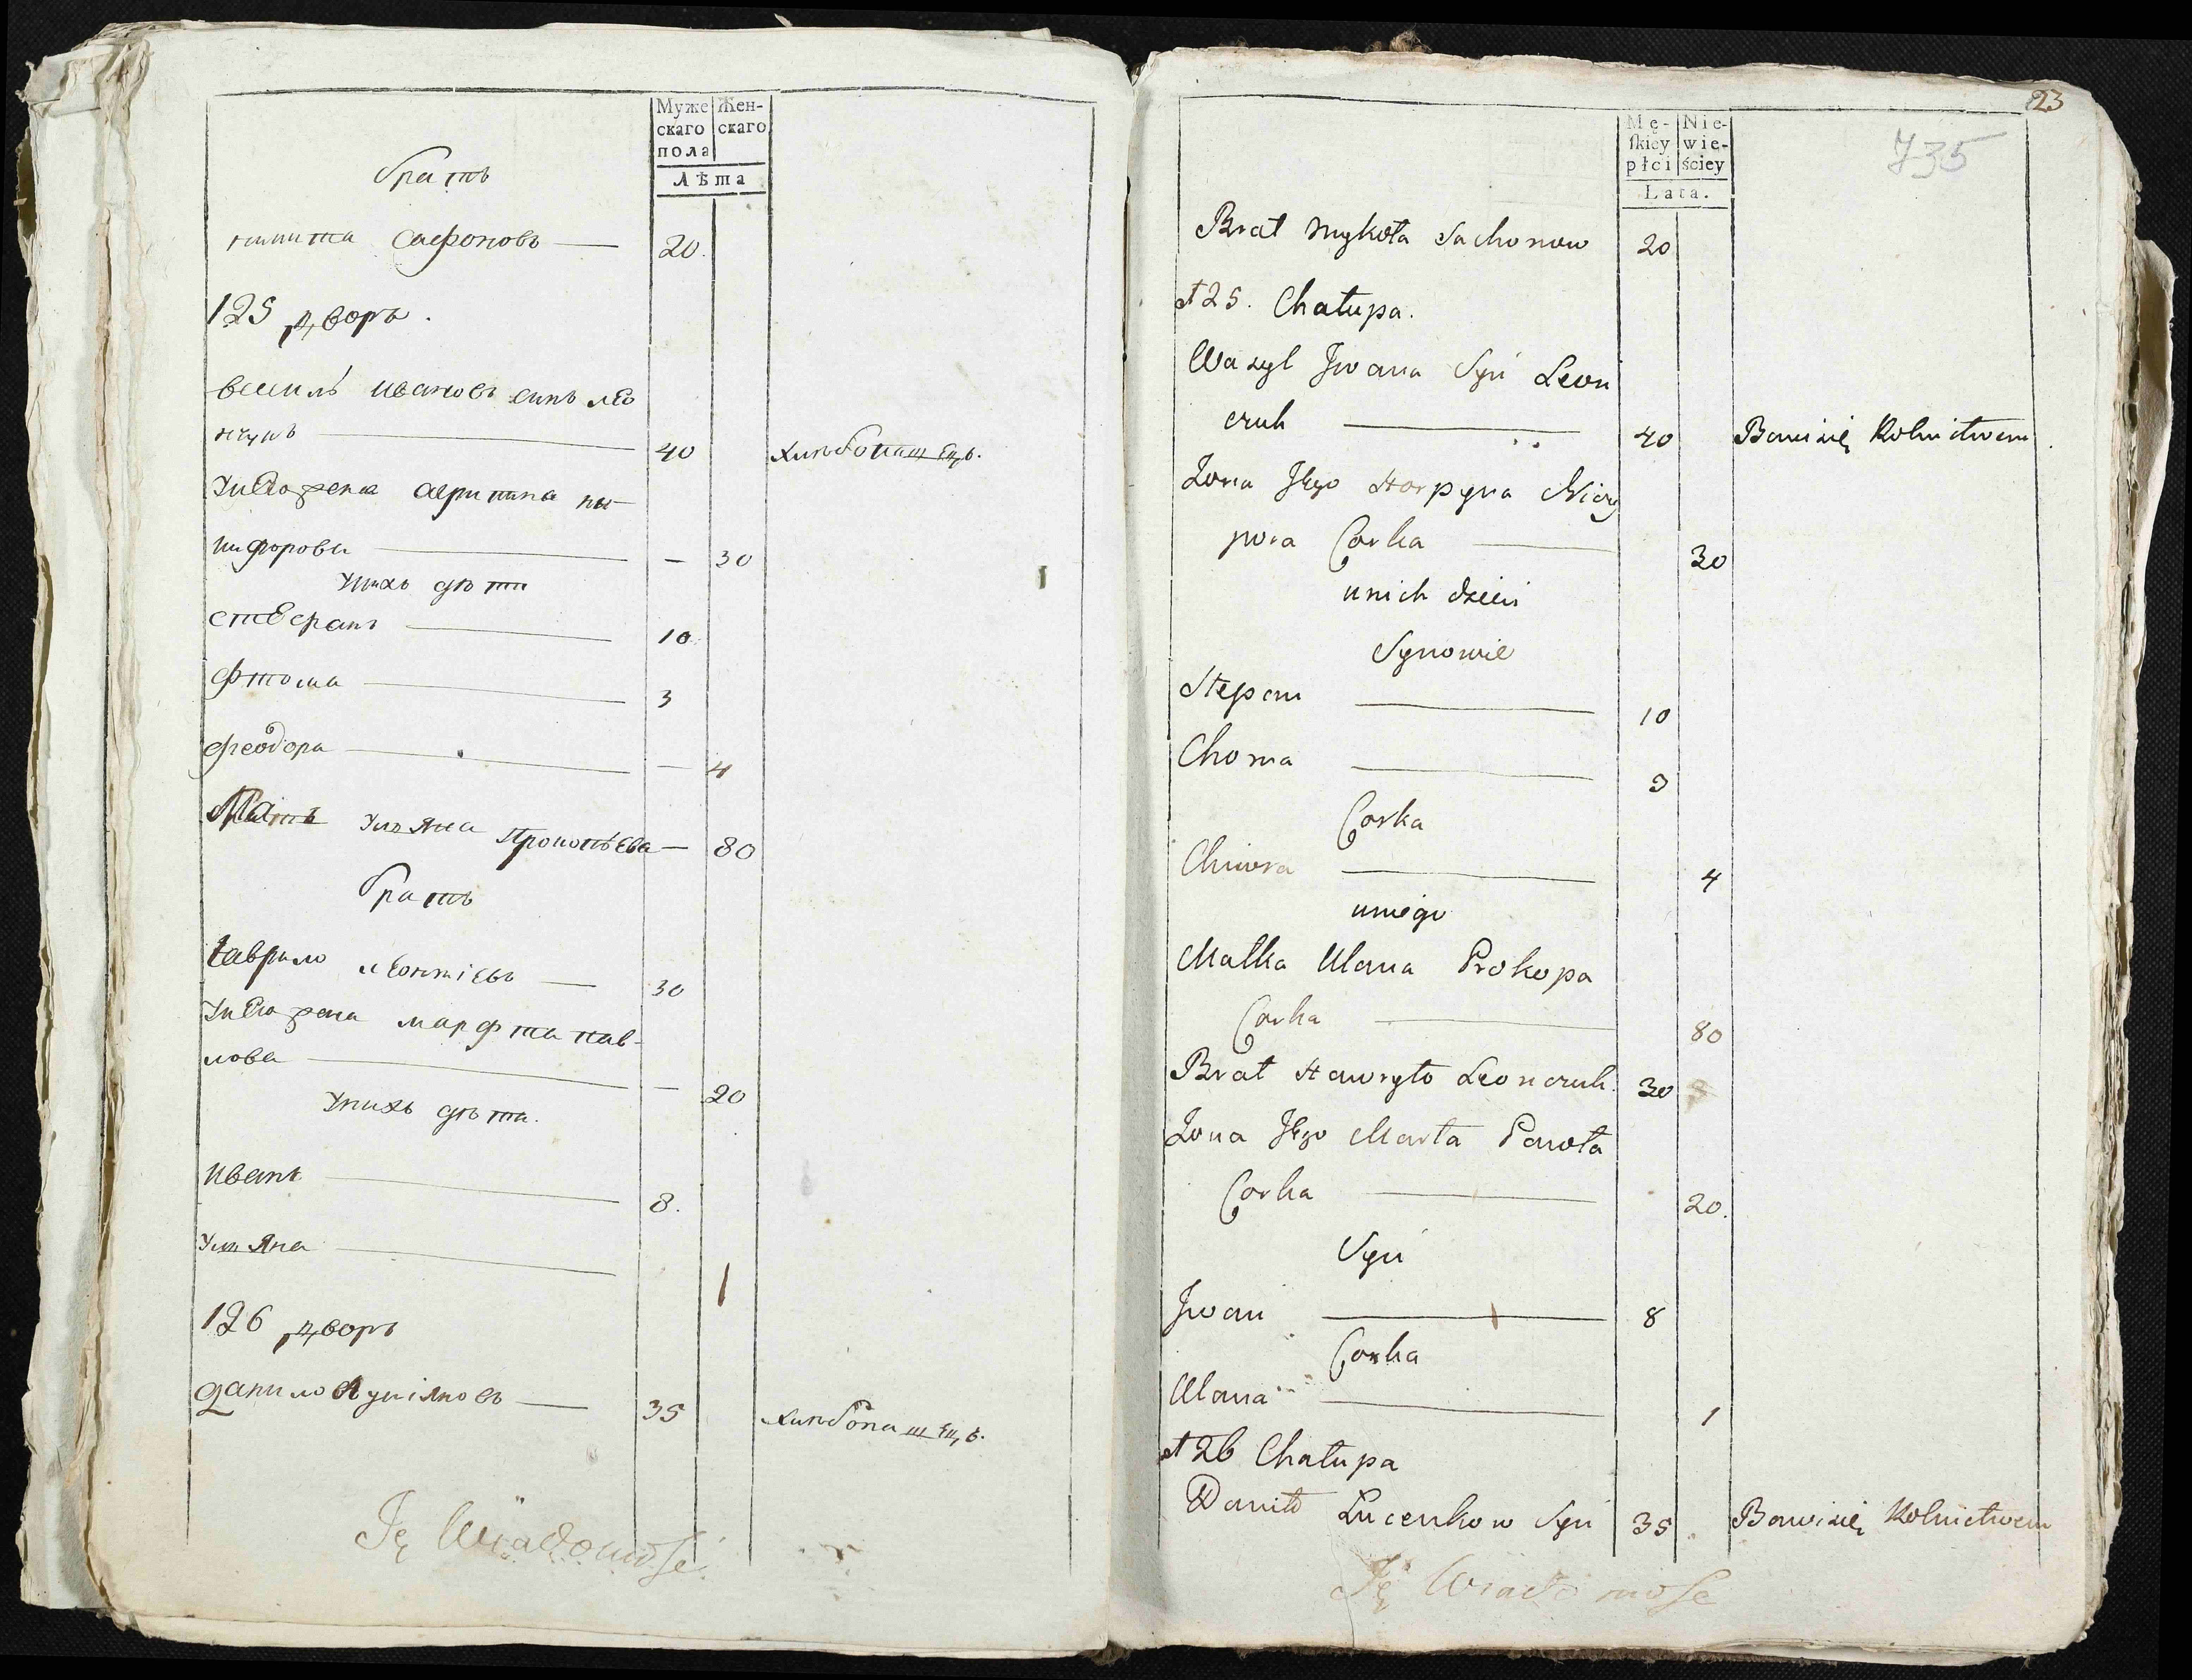 Муже Жен-
скаго скаго
пола
Лѣта
братъ
никита Сафоновъ — 20.
125 дворъ.
василь ивановъ синъ лео
нчукъ — 40 хлѣбопашецъ.
Унего жена агрипина ни-
кифорова — — 30
Унихъ дѣти
стефанъ — 10
фтома — 3
феодора — — 4
Мать Улияна Прокопьева — 80
братъ
гаврило леонтіевъ — 30
Унего жена марфта пав-
лова — — 20
Унихъ дѣти.
иванъ — 8.
Улияна — 1
126 дворъ
данило — 35 хлѣбопашецъ.
Tę Wiadomośc
23
735
Mę- Nie-
ſkiey wie-
płci ściey
Lata.
Brat Mykoła Sachonow 20
125. Chałupa.
Wasyl Jwana Syn Leon
czuk — 40 Bawi się Rolnictwem
Zona Jego Horpyna Niczy
pora Corka — 30
unich dzieci
Synowie
Stepan — 10
Choma — 3
Corka
Chiwra — 4
uniego
Matka Ulana Prokopa
Corka — 80
Brat Hawryło Leonczuk 30
Zona Jego Marta Pawła
Corka — 20.
Syn
Jwan — 8
Corka
Ulana — 1
126 Chałupa
Daniło Łucenkow Syn 35 Bawi się Rolnictwem
Tę Wiadomośc